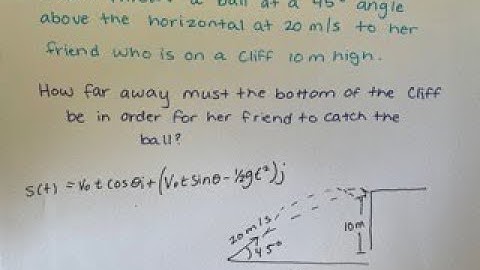 a ball at a 45° angle
above the horizontal at 20 m/s to her
friend who is on a cliff 10m high.
How far away must the bottom of the cliff
be in order for her friend to catch the
ball?
s(t) = v₀t cosθi + (v₀t sinθ - ½gt²)j
20 m/s
10m
45°